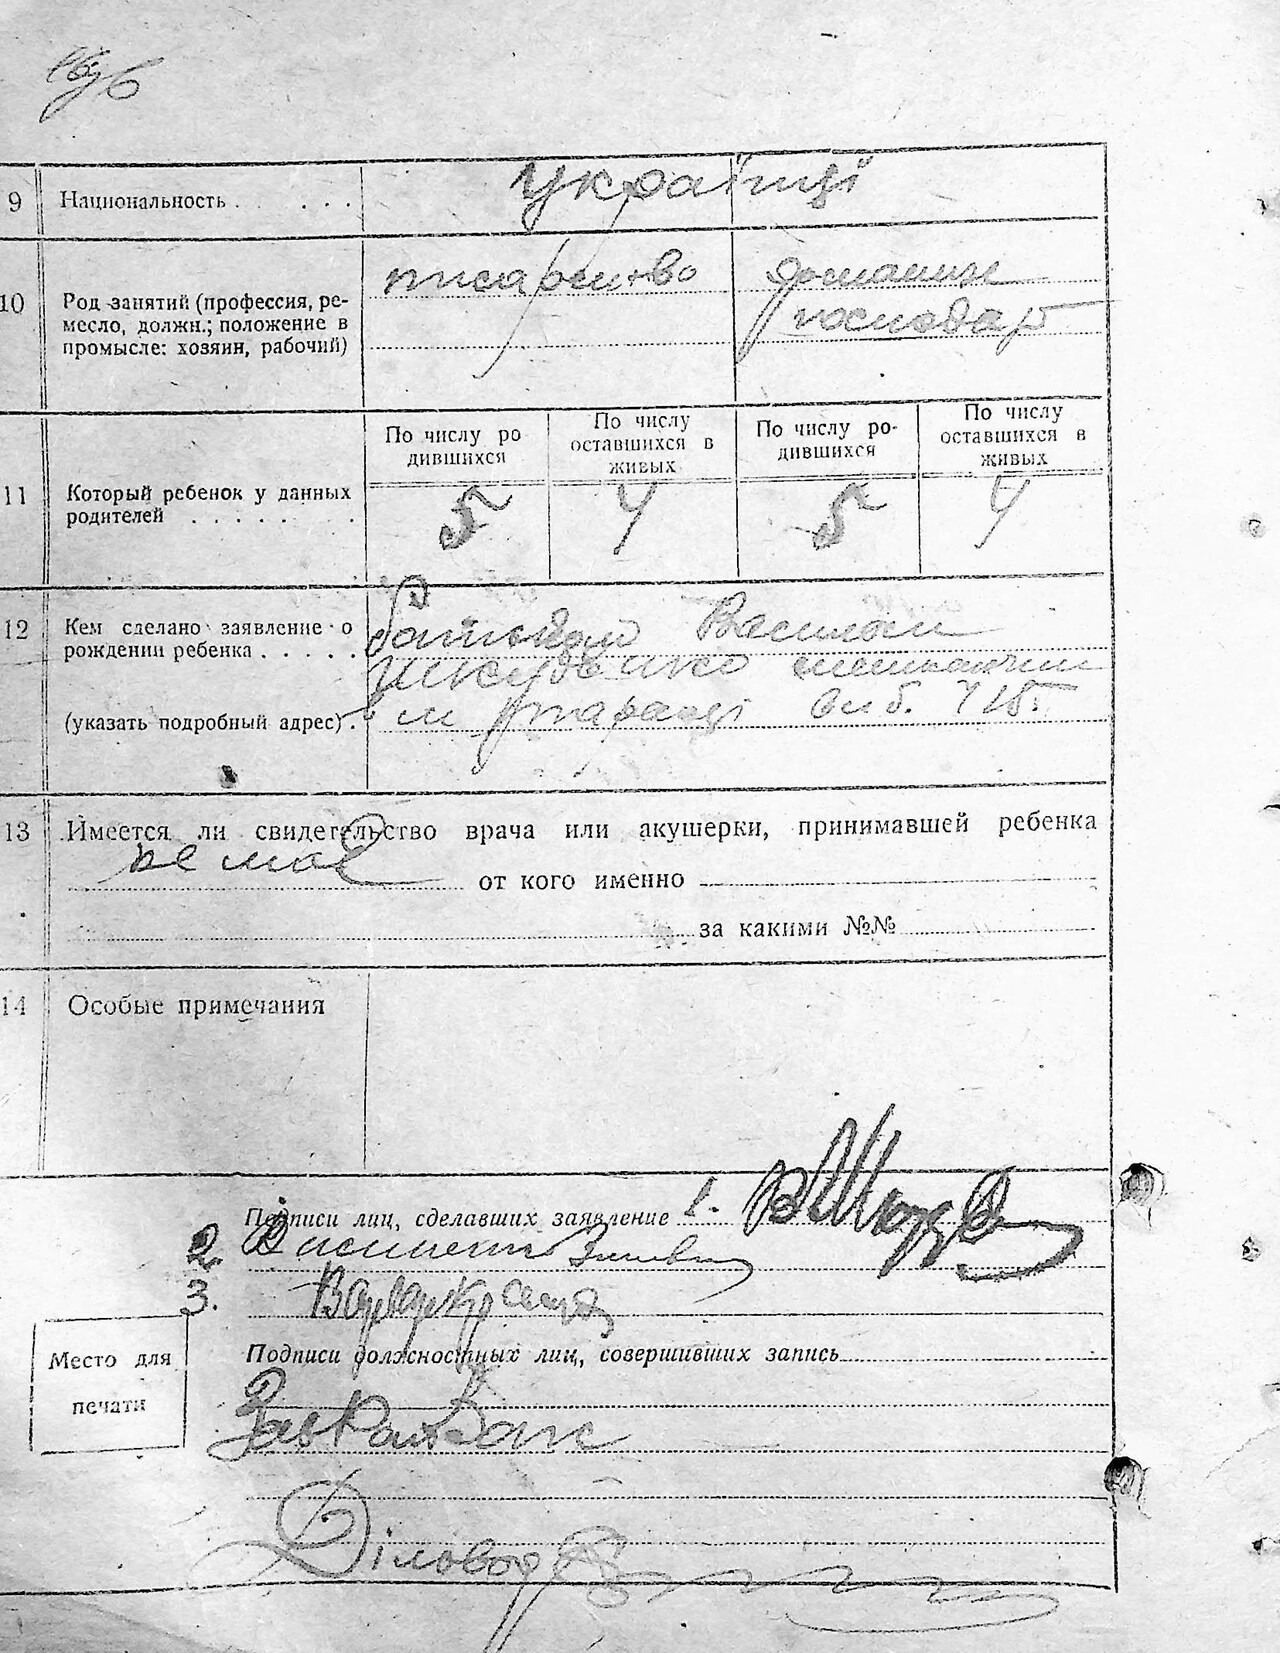 9 Национальность . . . . українці
10 Род занятий (профессия, ре-
месло, должн.; положение в
промысле: хозяин, рабочий)
писарство
домашнє
господар
11 Который ребенок у данных
родителей . . . . . . .
По числу ро
дившихся
По числу
оставшихся в
живых
По числу ро-
дившихся
По числу
оставшихся в
живых
5 4 5 4
12 Кем сделано заявление о
рождении ребенка . . . . .
(указать подробный адрес) .
батьком Василем
13 Имеется ли свидетельство врача или акушерки, принимавшей ребенка
не має от кого именно
за какими №№
14 Особые примечания
Подписи лиц, сделавших заявление 1.
2.
3.
Место для
печати
Подписи должностных лиц, совершивших запись
Діловод